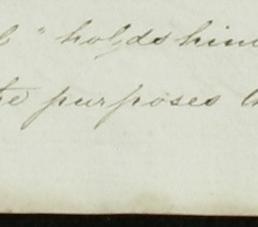 " holds him
the purposes